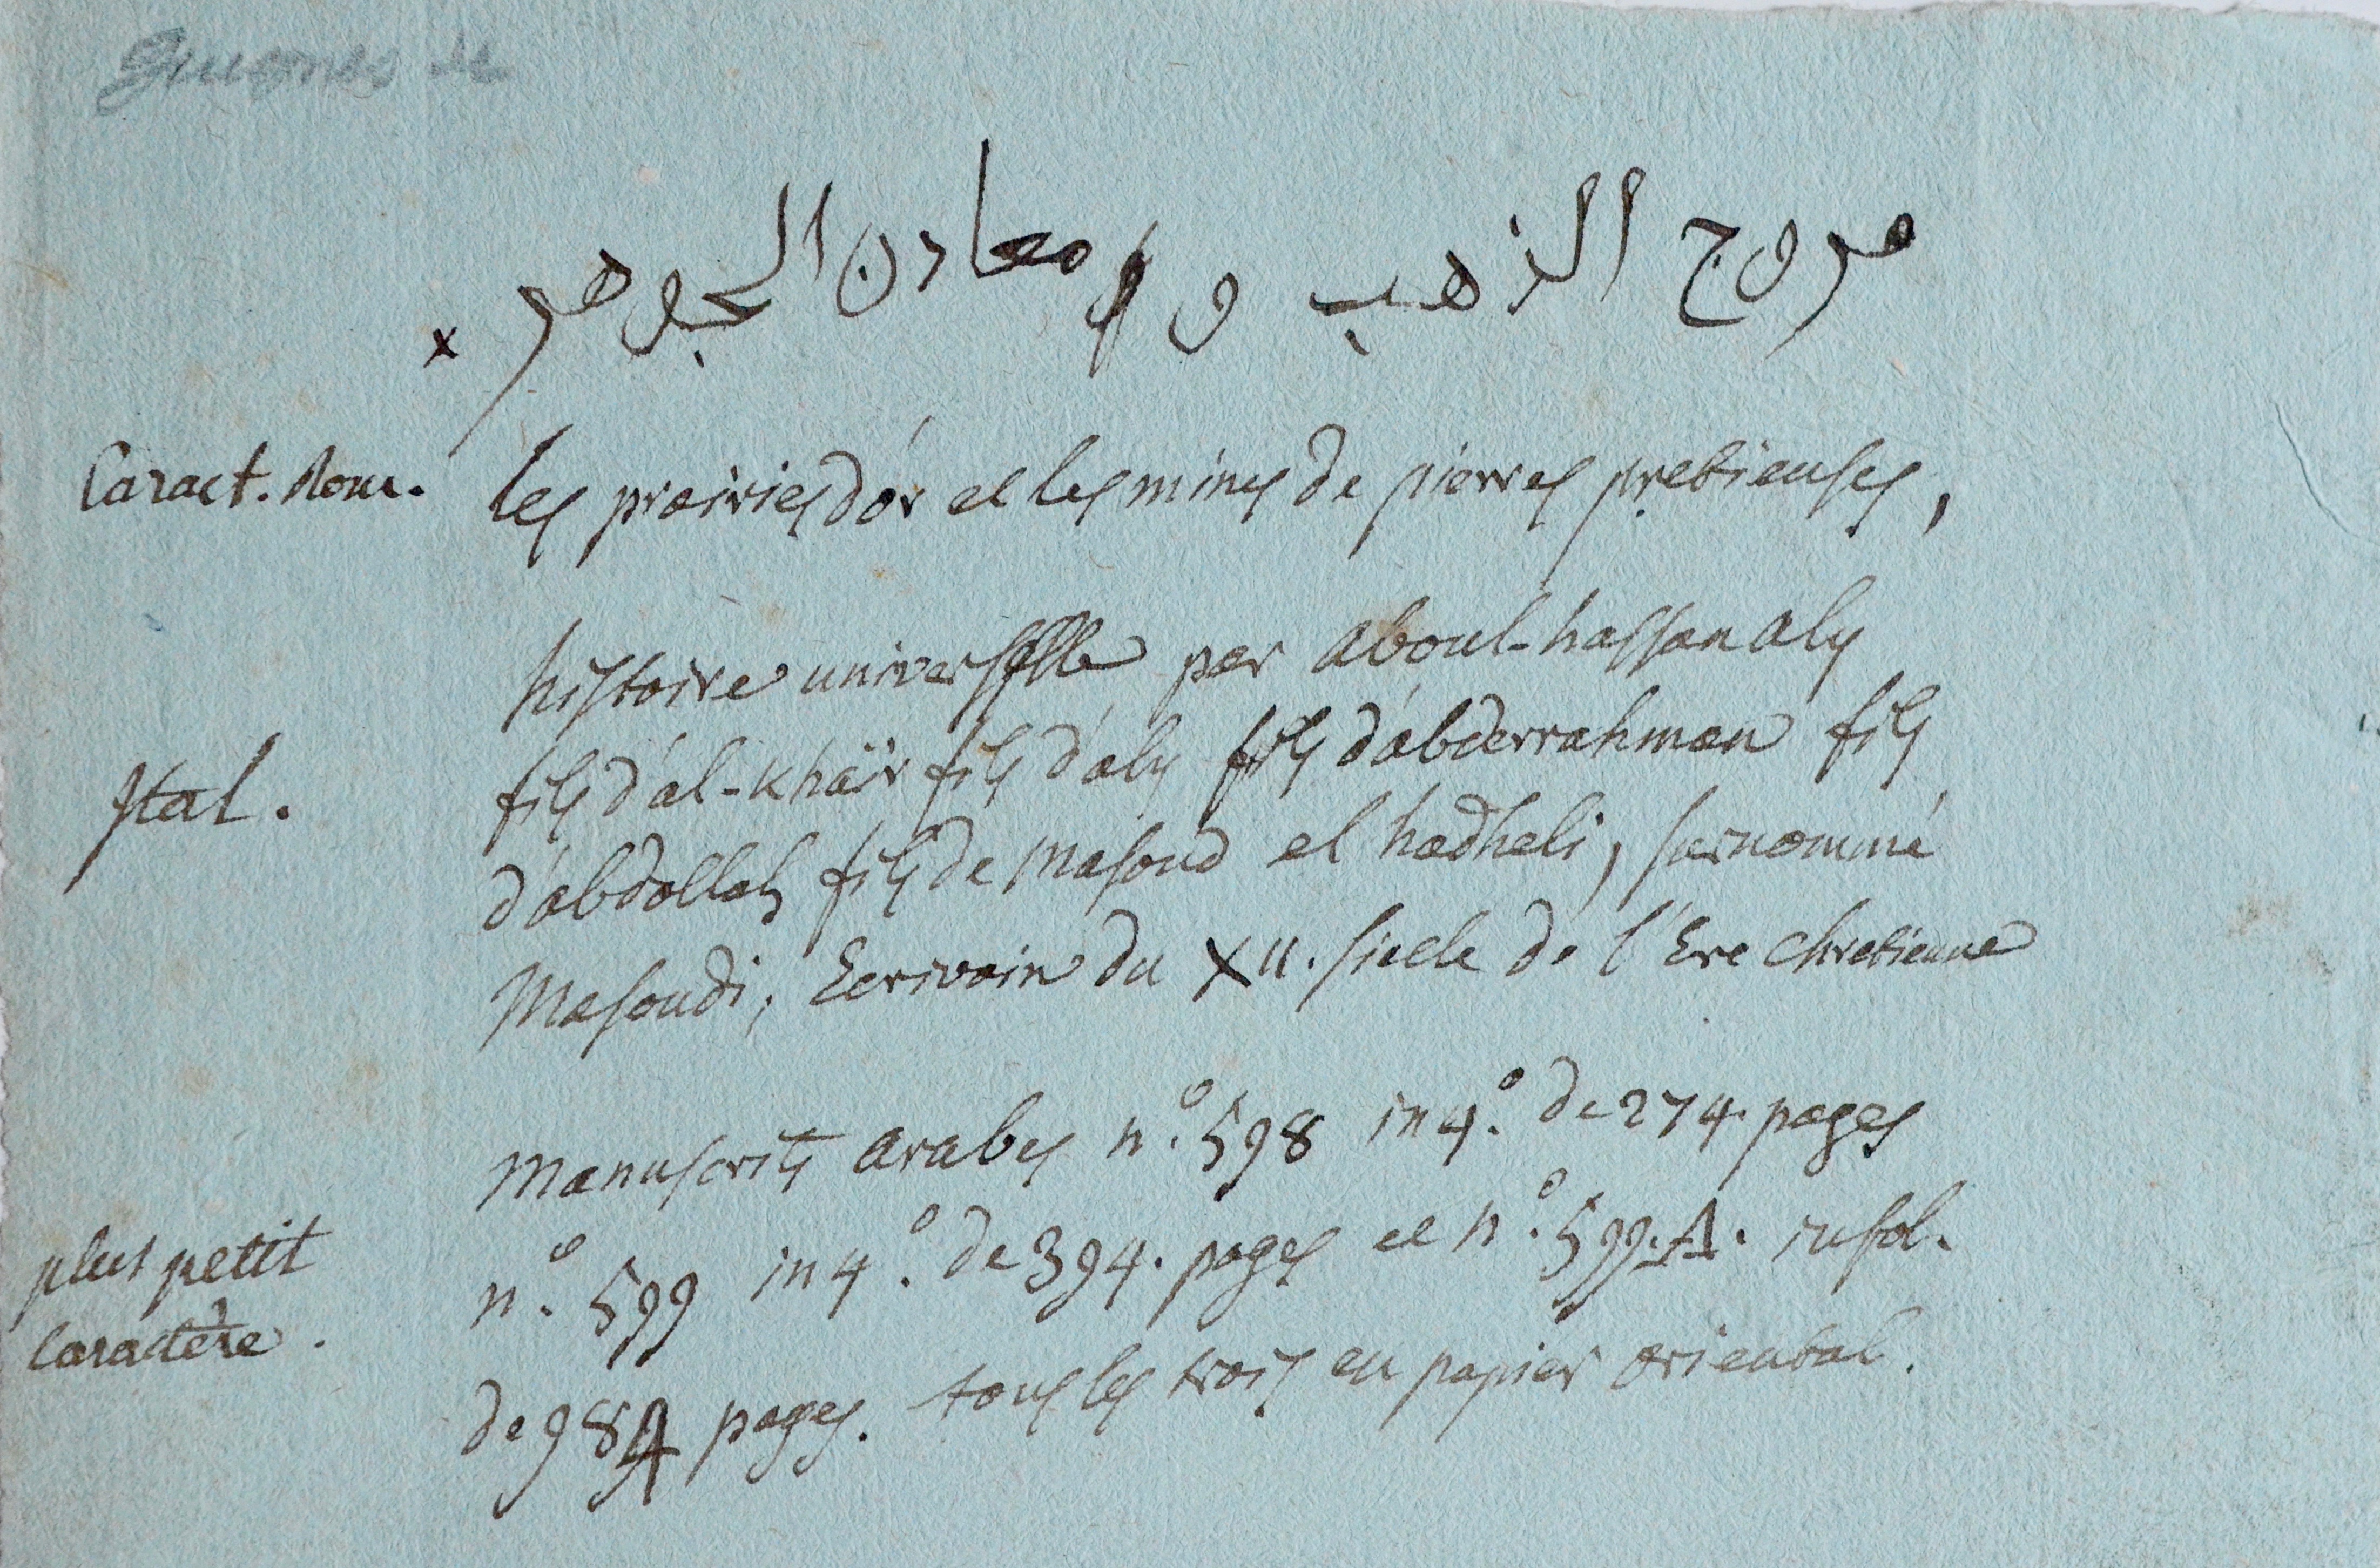 Guignes de
مروج الذهب و معادن الجوهر
x
Caract. Rom.
les prairies d'or et les mines de pierres pretieuses,
histoire universelle par aboul-hassan aly
Ital.
fils d'al-khaïr fils d'aly fils d'abderrahman fils
d'abdollah fils de Masoud el hadheli, surnommé
Masoudi, Ecrivain du XII. siecle de l'Ere chretienne
Manuscrits arabes n.º 598 in 4.º de 274. pages
plus petit
caractère.
n.º 599 in 4.º de 394. pages et n.º 599.A. infol.
de 984 pages. tous les trois en papier oriental.